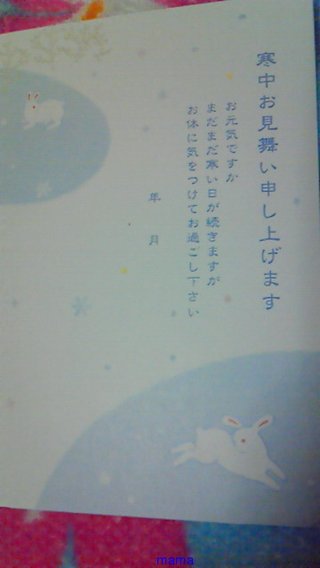 寒中お見舞い申し上げます
お元気ですか
まだまだ寒い日が続きますが
お体に気をつけてお過ごし下さい
年 月
mama